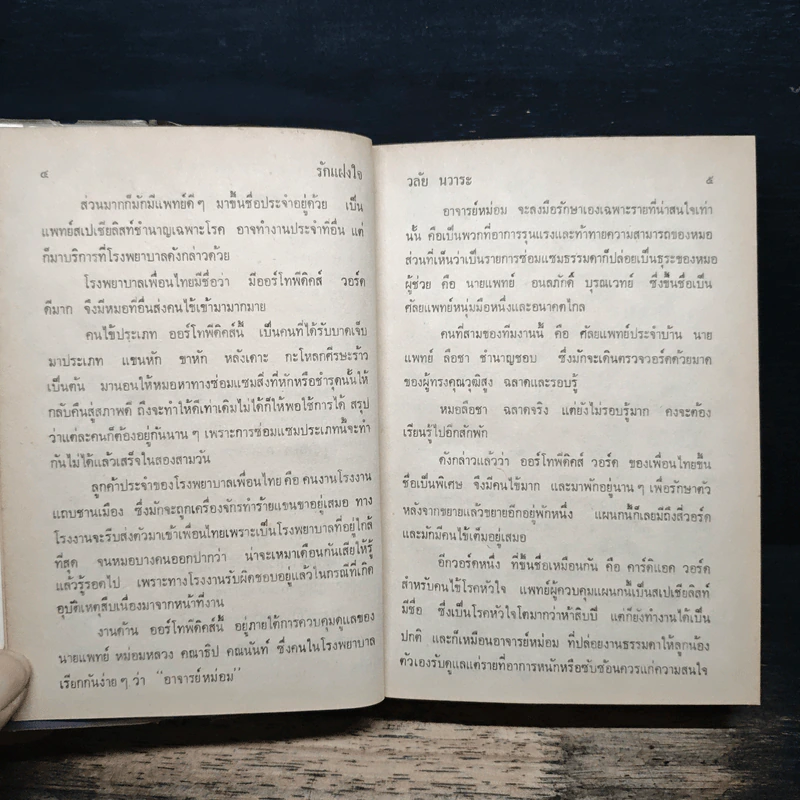 ๔ รักแฝงใจ
ส่วนมากก็มักมีแพทย์ดีๆ มาขึ้นชื่อประจำอยู่ด้วย เป็น
แพทย์สเปเชียลิสท์ชำนาญเฉพาะโรค อาจทำงานประจำที่อื่น แต่
ก็มาบริการที่โรงพยาบาลดังกล่าวด้วย
โรงพยาบาลเพื่อนไทยมีชื่อว่า มีออร์โทพีดิคส์ วอร์ด
ดีมาก จึงมีหมอที่อื่นส่งคนไข้เข้ามามากมาย
คนไข้ประเภท ออร์โทพีดิคส์นี้ เป็นคนที่ได้รับบาดเจ็บ
มาประเภท แขนหัก ขาหัก หลังเดาะ กะโหลกศีรษะร้าว
เป็นต้น มานอนให้หมอหาทางซ่อมแซมสิ่งที่หักหรือชำรุดนั้นให้
กลับคืนสู่สภาพดี ถึงจะทำให้ดีเท่าเดิมไม่ได้ก็ให้พอใช้การได้ สรุป
ว่าแต่ละคนก็ต้องอยู่กันนานๆ เพราะการซ่อมแซมประเภทนี้จะทำ
กันไม่ได้แล้วเสร็จในสองสามวัน
ลูกค้าประจำของโรงพยาบาลเพื่อนไทย คือ คนงานโรงงาน
แถบชานเมือง ซึ่งมักจะถูกเครื่องจักรทำร้ายแขนขาอยู่เสมอ ทาง
โรงงานจะรีบส่งตัวมาเข้าเพื่อนไทยเพราะเป็นโรงพยาบาลที่อยู่ใกล้
ที่สุด จนหมอบางคนออกปากว่า น่าจะเหมาเดือนกันเสียให้รู้
แล้วรู้รอดไป เพราะทางโรงงานรับผิดชอบอยู่แล้วในกรณีที่เกิด
อุบัติเหตุสืบเนื่องมาจากหน้าที่งาน
งานด้าน ออร์โทพีดิคส์นี้ อยู่ภายใต้การควบคุมดูแลของ
นายแพทย์ หม่อมหลวง คณาธิป คณนันท์ ซึ่งคนในโรงพยาบาล
เรียกกันง่ายๆ ว่า "อาจารย์หม่อม"
วลัย นวาระ ๕
อาจารย์หม่อม จะลงมือรักษาเองเฉพาะรายที่น่าสนใจเท่า
นั้น คือเป็นพวกที่อาการรุนแรงและท้าทายความสามารถของหมอ
ส่วนที่เห็นว่าเป็นรายการซ่อมแซมธรรมดาก็ปล่อยเป็นธุระของหมอ
ผู้ช่วย คือ นายแพทย์ อนลภักดิ์ บุรณเวทย์ ซึ่งขึ้นชื่อเป็น
ศัลยแพทย์หนุ่มมือหนึ่งและอนาคตไกล
คนที่สามของทีมงานนี้ คือ ศัลยแพทย์ประจำบ้าน นาย
แพทย์ ลือชา ชำนาญชอบ ซึ่งมักจะเดินตรวจวอร์ดด้วยมาด
ของผู้ทรงคุณวุฒิสูง ฉลาดและรอบรู้
หมอลือชา ฉลาดจริง แต่ยังไม่รอบรู้มาก คงจะต้อง
เรียนรู้ไปอีกสักพัก
ดังกล่าวแล้วว่า ออร์โทพีดิคส์ วอร์ด ของเพื่อนไทยขึ้น
ชื่อเป็นพิเศษ จึงมีคนไข้มาก และมาพักอยู่นานๆ เพื่อรักษาตัว
หลังจากขยายแล้วขยายอีกอยู่พักหนึ่ง แผนกนี้ก็เลยมีถึงสี่วอร์ด
และมักมีคนไข้เต็มอยู่เสมอ
อีกวอร์ดหนึ่ง ที่ขึ้นชื่อเหมือนกัน คือ คาร์ดิแอค วอร์ด
สำหรับคนไข้โรคหัวใจ แพทย์ผู้ควบคุมแผนกนี้เป็นสเปเชียลิสท์
มีชื่อ ซึ่งเป็นโรคหัวใจโตมากว่าห้าสิบปี แต่ก็ยังทำงานได้เป็น
ปกติ และก็เหมือนอาจารย์หม่อม ที่ปล่อยงานธรรมดาให้ลูกน้อง
ตัวเองรับดูแลแต่รายที่อาการหนักหรือซับซ้อนควรแก่ความสนใจ